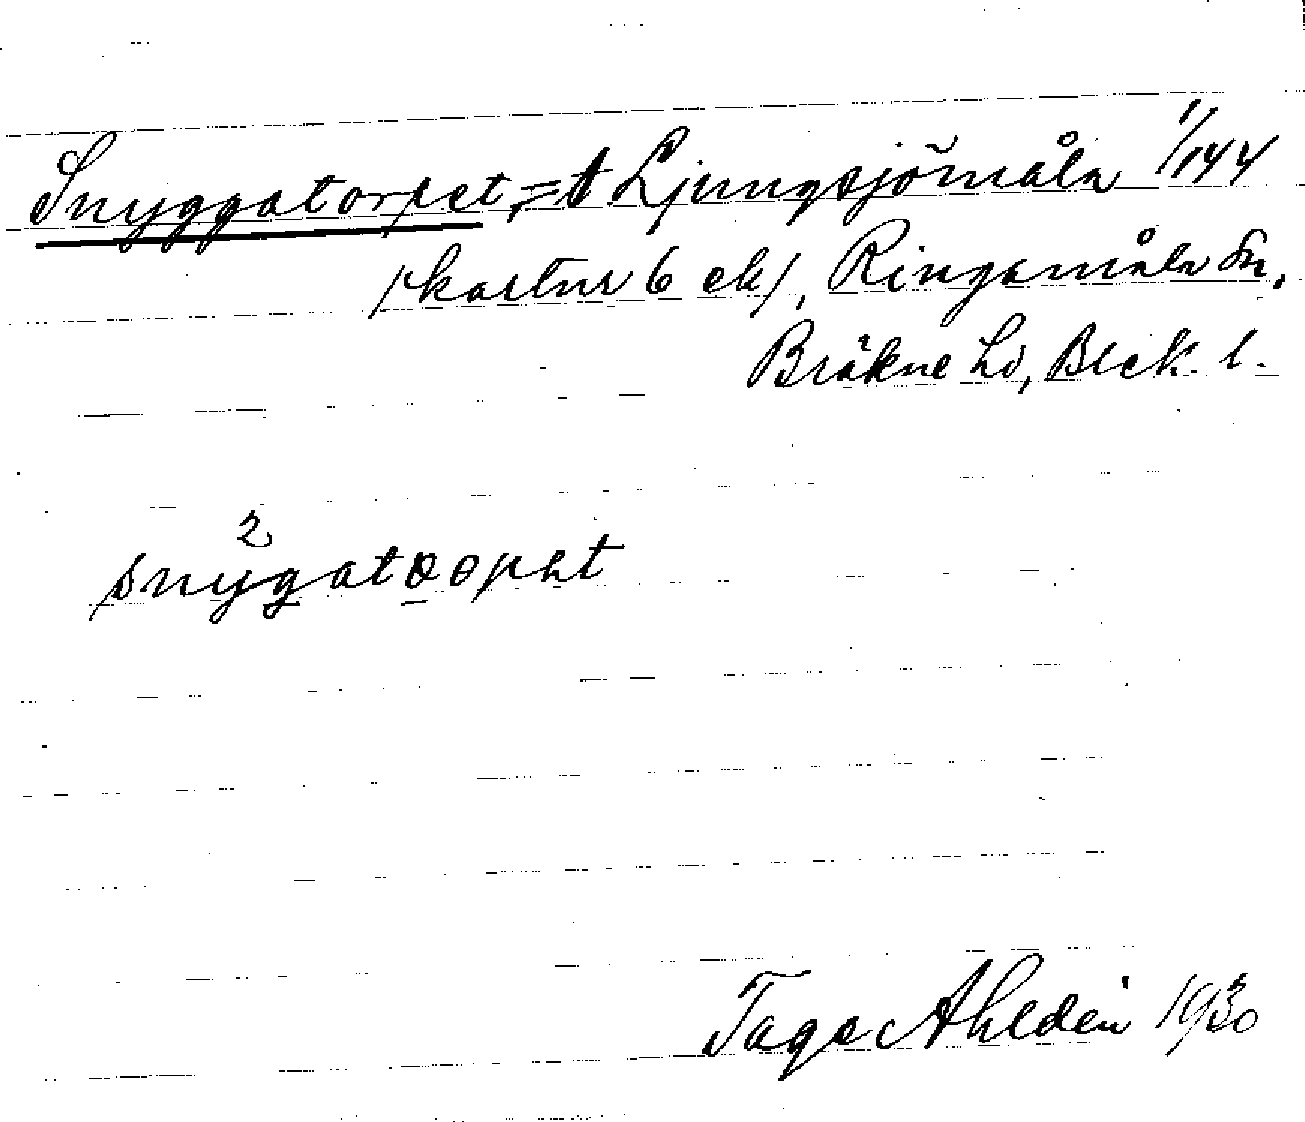 Snyggatorpet, = t Ljungsjömåla 1/144
/kartur 6 ek/, Ringamåla sn,
Bräkne hd, Blek. l.
snygatoopet
Tage Ahldén 1930